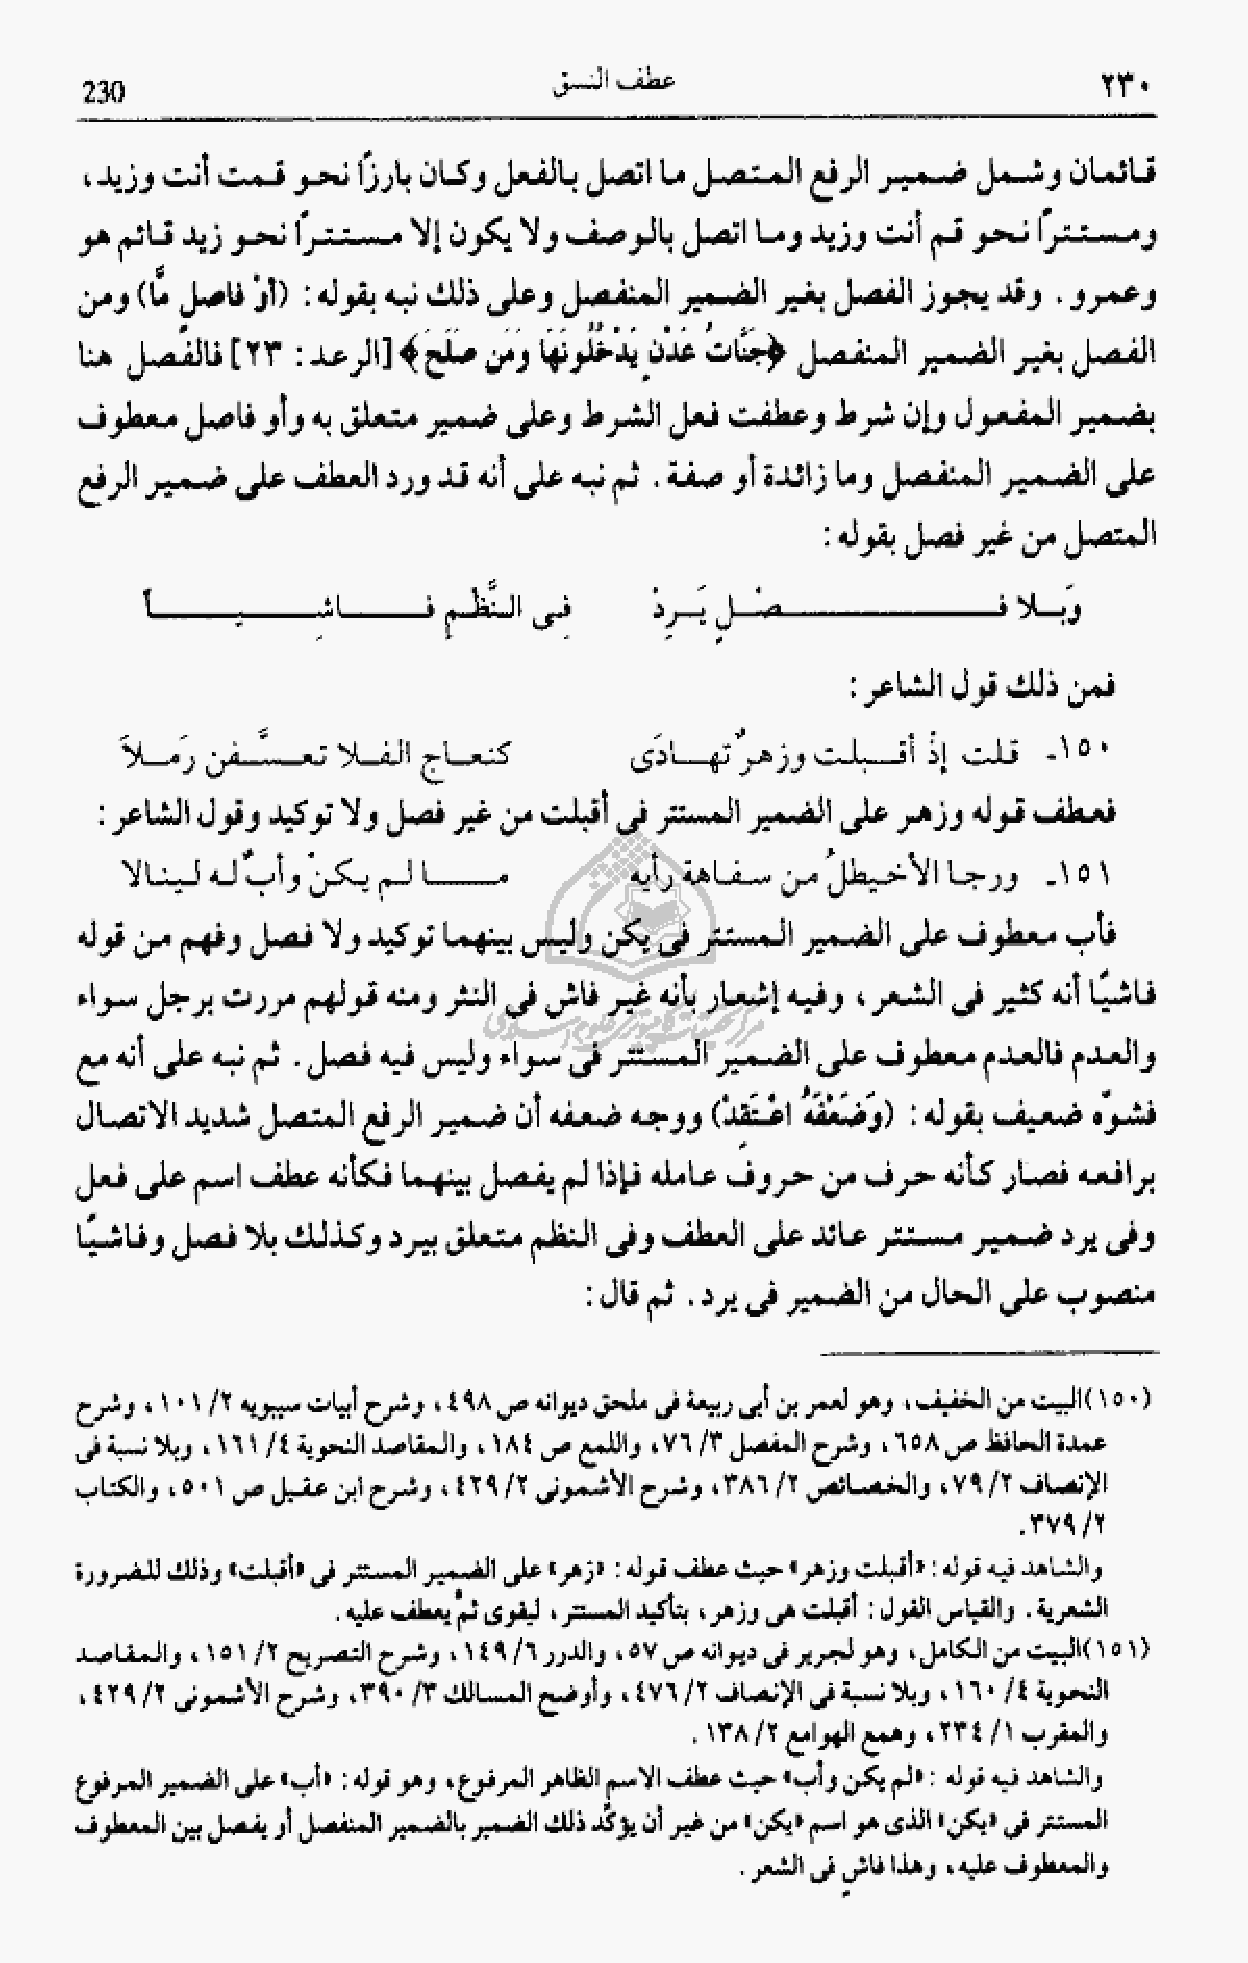 ٢٣٠ عطف النسق 230
قائمان وشمل ضمير الرفع المتصل ما اتصل بالفعل وكان بارزاً نحو قمت أنت وزيد،
ومستتراً نحو قم أنت وزيد وما اتصل بالوصف ولا يكون إلا مستتراً نحو زيد قائم هو
وعمرو . وقد يجوز الفصل بغير الضمير المنفصل وعلى ذلك نبه بقوله : (أوْ فاصل مَّا) ومن
الفصل بغير الضمير المنفصل ﴿جَنَّاتُ عَدْنٍ يَدْخُلُونَهَا وَمَن صَلَحَ﴾ [الرعد : ٢٣] فالفصل هنا
بضمير المفعول وإن شرط وعطفت فعل الشرط وعلى ضمير متعلق به وأو فاصل معطوف
على الضمير المنفصل وما زائدة أو صفة . ثم نبه على أنه قد ورد العطف على ضمير الرفع
المتصل من غير فصل بقوله :
وَبِلا فَصْلٍ يَرِدْ فِى النَّظْمِ فَاشِياً
فمن ذلك قول الشاعر :
١٥٠ـ قلت إذْ أقبلت وزهرٌ تهادَى كنعاج الفلا تعسَّفن رَملاَ
فعطف قوله وزهر على الضمير المستتر فى أقبلت من غير فصل ولا توكيد وقول الشاعر :
١٥١ـ ورجا الأخيطلُ من سفاهة رأيه ما لم يكنْ وأبٌ له لينالا
فأب معطوف على الضمير المستتر فى يكن وليس بينهما توكيد ولا فصل وفهم من قوله
فاشيًا أنه كثير فى الشعر ، وفيه إشعار بأنه غير فاش فى النثر ومنه قولهم مررت برجل سواء
والعدم فالعدم معطوف على الضمير المستتر فى سواء وليس فيه فصل . ثم نبه على أنه مع
فشوّه ضعيف بقوله : (وَضَعْفَهُ اعْتَقِدْ) ووجه ضعفه أن ضمير الرفع المتصل شديد الاتصال
برافعه فصار كأنه حرف من حروف عامله فإذا لم يفصل بينهما فكأنه عطف اسم على فعل
وفى يرد ضمير مستتر عائد على العطف وفى النظم متعلق بيرد وكذلك بلا فصل وفاشيًا
منصوب على الحال من الضمير فى يرد . ثم قال :
(١٥٠) البيت من الخفيف ، وهو لعمر بن أبى ربيعة فى ملحق ديوانه ص ٤٩٨ ، وشرح أبيات سيبويه ٢/ ١٠١ ، وشرح
عمدة الحافظ ص ٦٥٨ ، وشرح المفصل ٣/ ٧٦، واللمع ص ١٨٤ ، والمقاصد النحوية ٤/ ١٦١ ، وبلا نسبة فى
الإنصاف ٢/ ٧٩، والخصائص ٢/ ٣٨٦، وشرح الأشمونى ٢/ ٤٢٩ ، وشرح ابن عقيل ص ٥٠١، والكتاب
٢/ ٣٧٩.
والشاهد فيه قوله : «أقبلت وزهر» حيث عطف قوله : «زهر» على الضمير المستتر فى «أقبلت» وذلك للضرورة
الشعرية . والقياس القول : أقبلت هى وزهر ، بتأكيد المستتر ، ليقوى ثمّ يعطف عليه .
(١٥١) البيت من الكامل، وهو لجرير فى ديوانه ص ٥٧ ، والدرر ٦/ ١٤٩ ، وشرح التصريح ٢/ ١٥١ ، والمقاصد
النحوية ٤/ ١٦٠ ، وبلا نسبة فى الإنصاف ٢/ ٤٧٦ ، وأوضح المسالك ٣/ ٣٩٠، وشرح الأشمونى ٢/ ٤٢٩ ،
والمقرب ١/ ٢٣٤ ، وهمع الهوامع ٢/ ١٣٨ .
والشاهد فيه قوله : «لم يكن وأب» حيث عطف الاسم الظاهر المرفوع، وهو قوله : «أب» على الضمير المرفوع
المستتر فى «يكن» الذى هو اسم «يكن» من غير أن يؤكّد ذلك الضمير بالضمير المنفصل أو يفصل بين المعطوف
والمعطوف عليه ، وهذا فاشٍ فى الشعر .